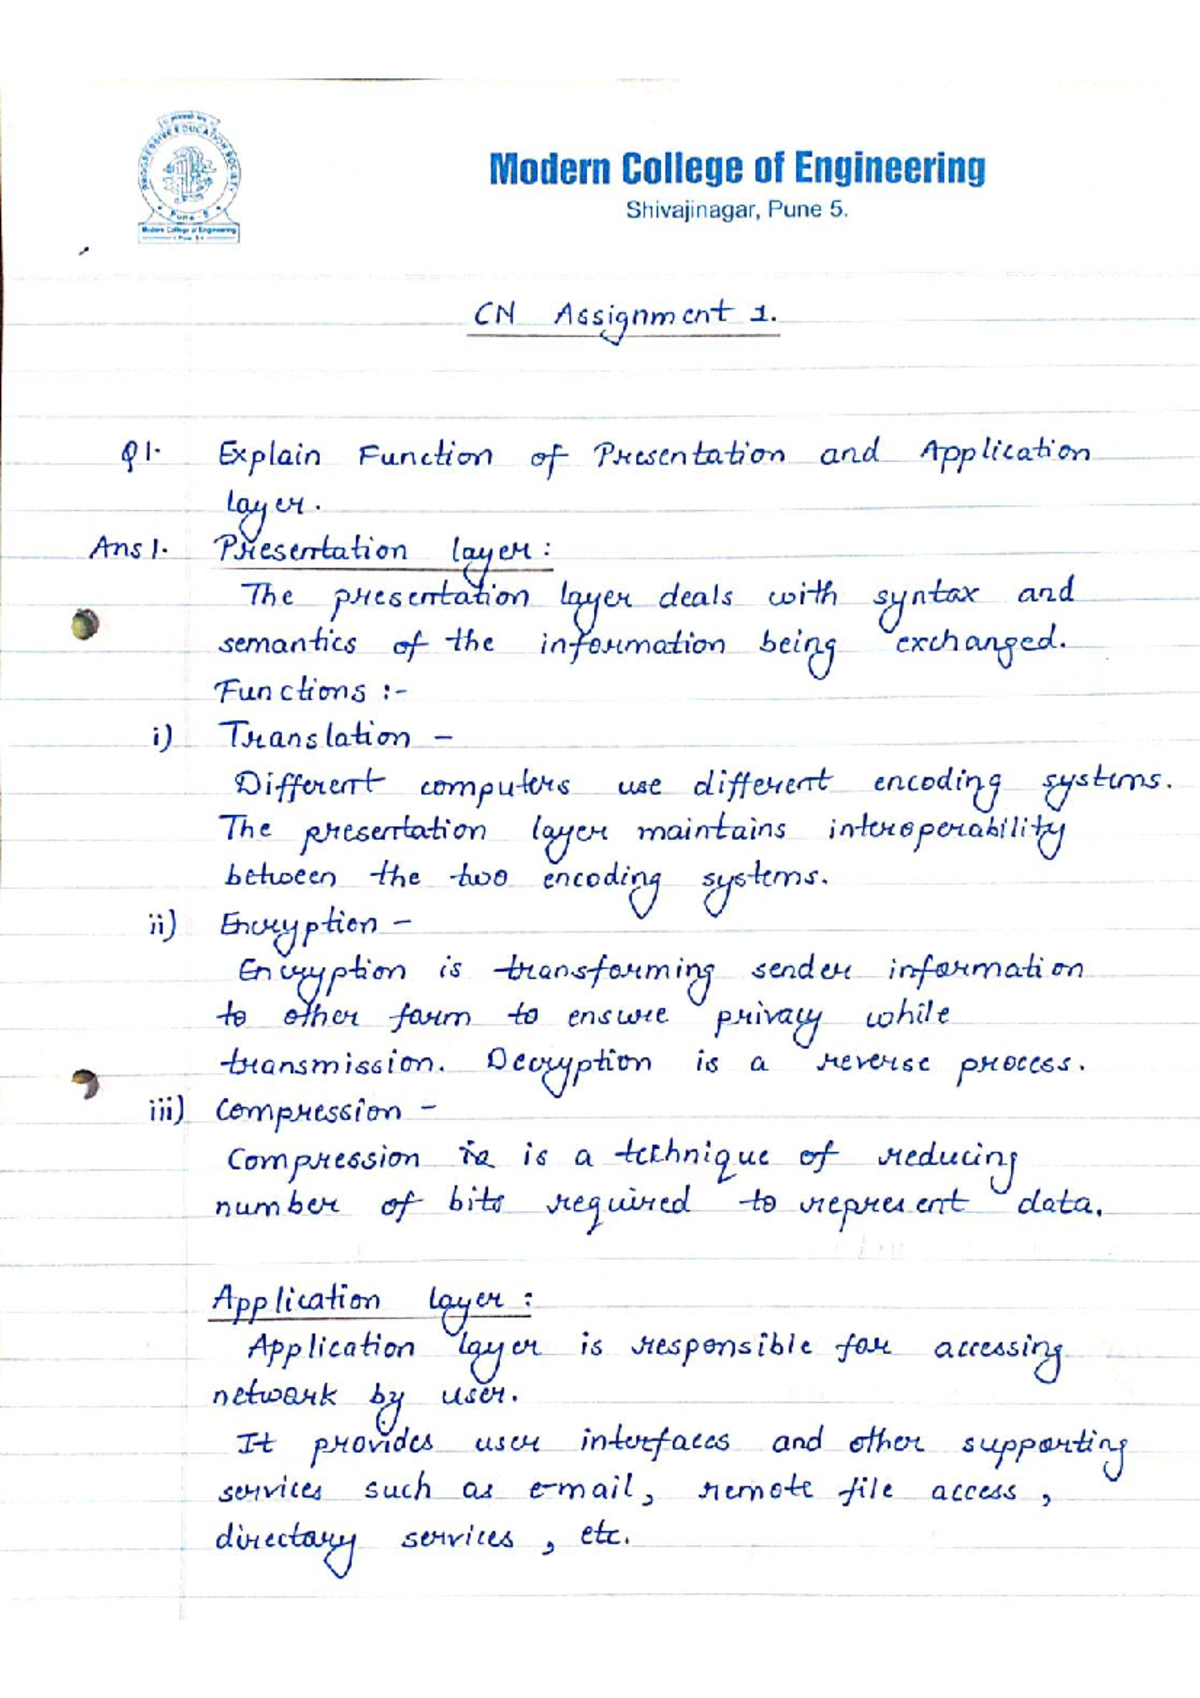 PROGRESSIVE EDUCATION SOCIETY
Pune - 5
Modern College of Engineering
Pune 5.
Modern College of Engineering
Shivajinagar, Pune 5.
CN Assignment 1.
Q1. Explain Function of Presentation and Application
layer.
Ans 1. Presentation layer :
The presentation layer deals with syntax and
semantics of the information being exchanged.
Functions :-
i) Translation -
Different computers use different encoding systems.
The presentation layer maintains interoperability
between the two encoding systems.
ii) Encryption -
Encryption is transforming sender information
to other form to ensure privacy while
transmission. Decryption is a reverse process.
iii) Compression -
Compression is a technique of reducing
number of bits required to represent data.
Application layer :
Application layer is responsible for accessing
network by user.
It provides user interfaces and other supporting
services such as e-mail, remote file access,
directory services, etc.